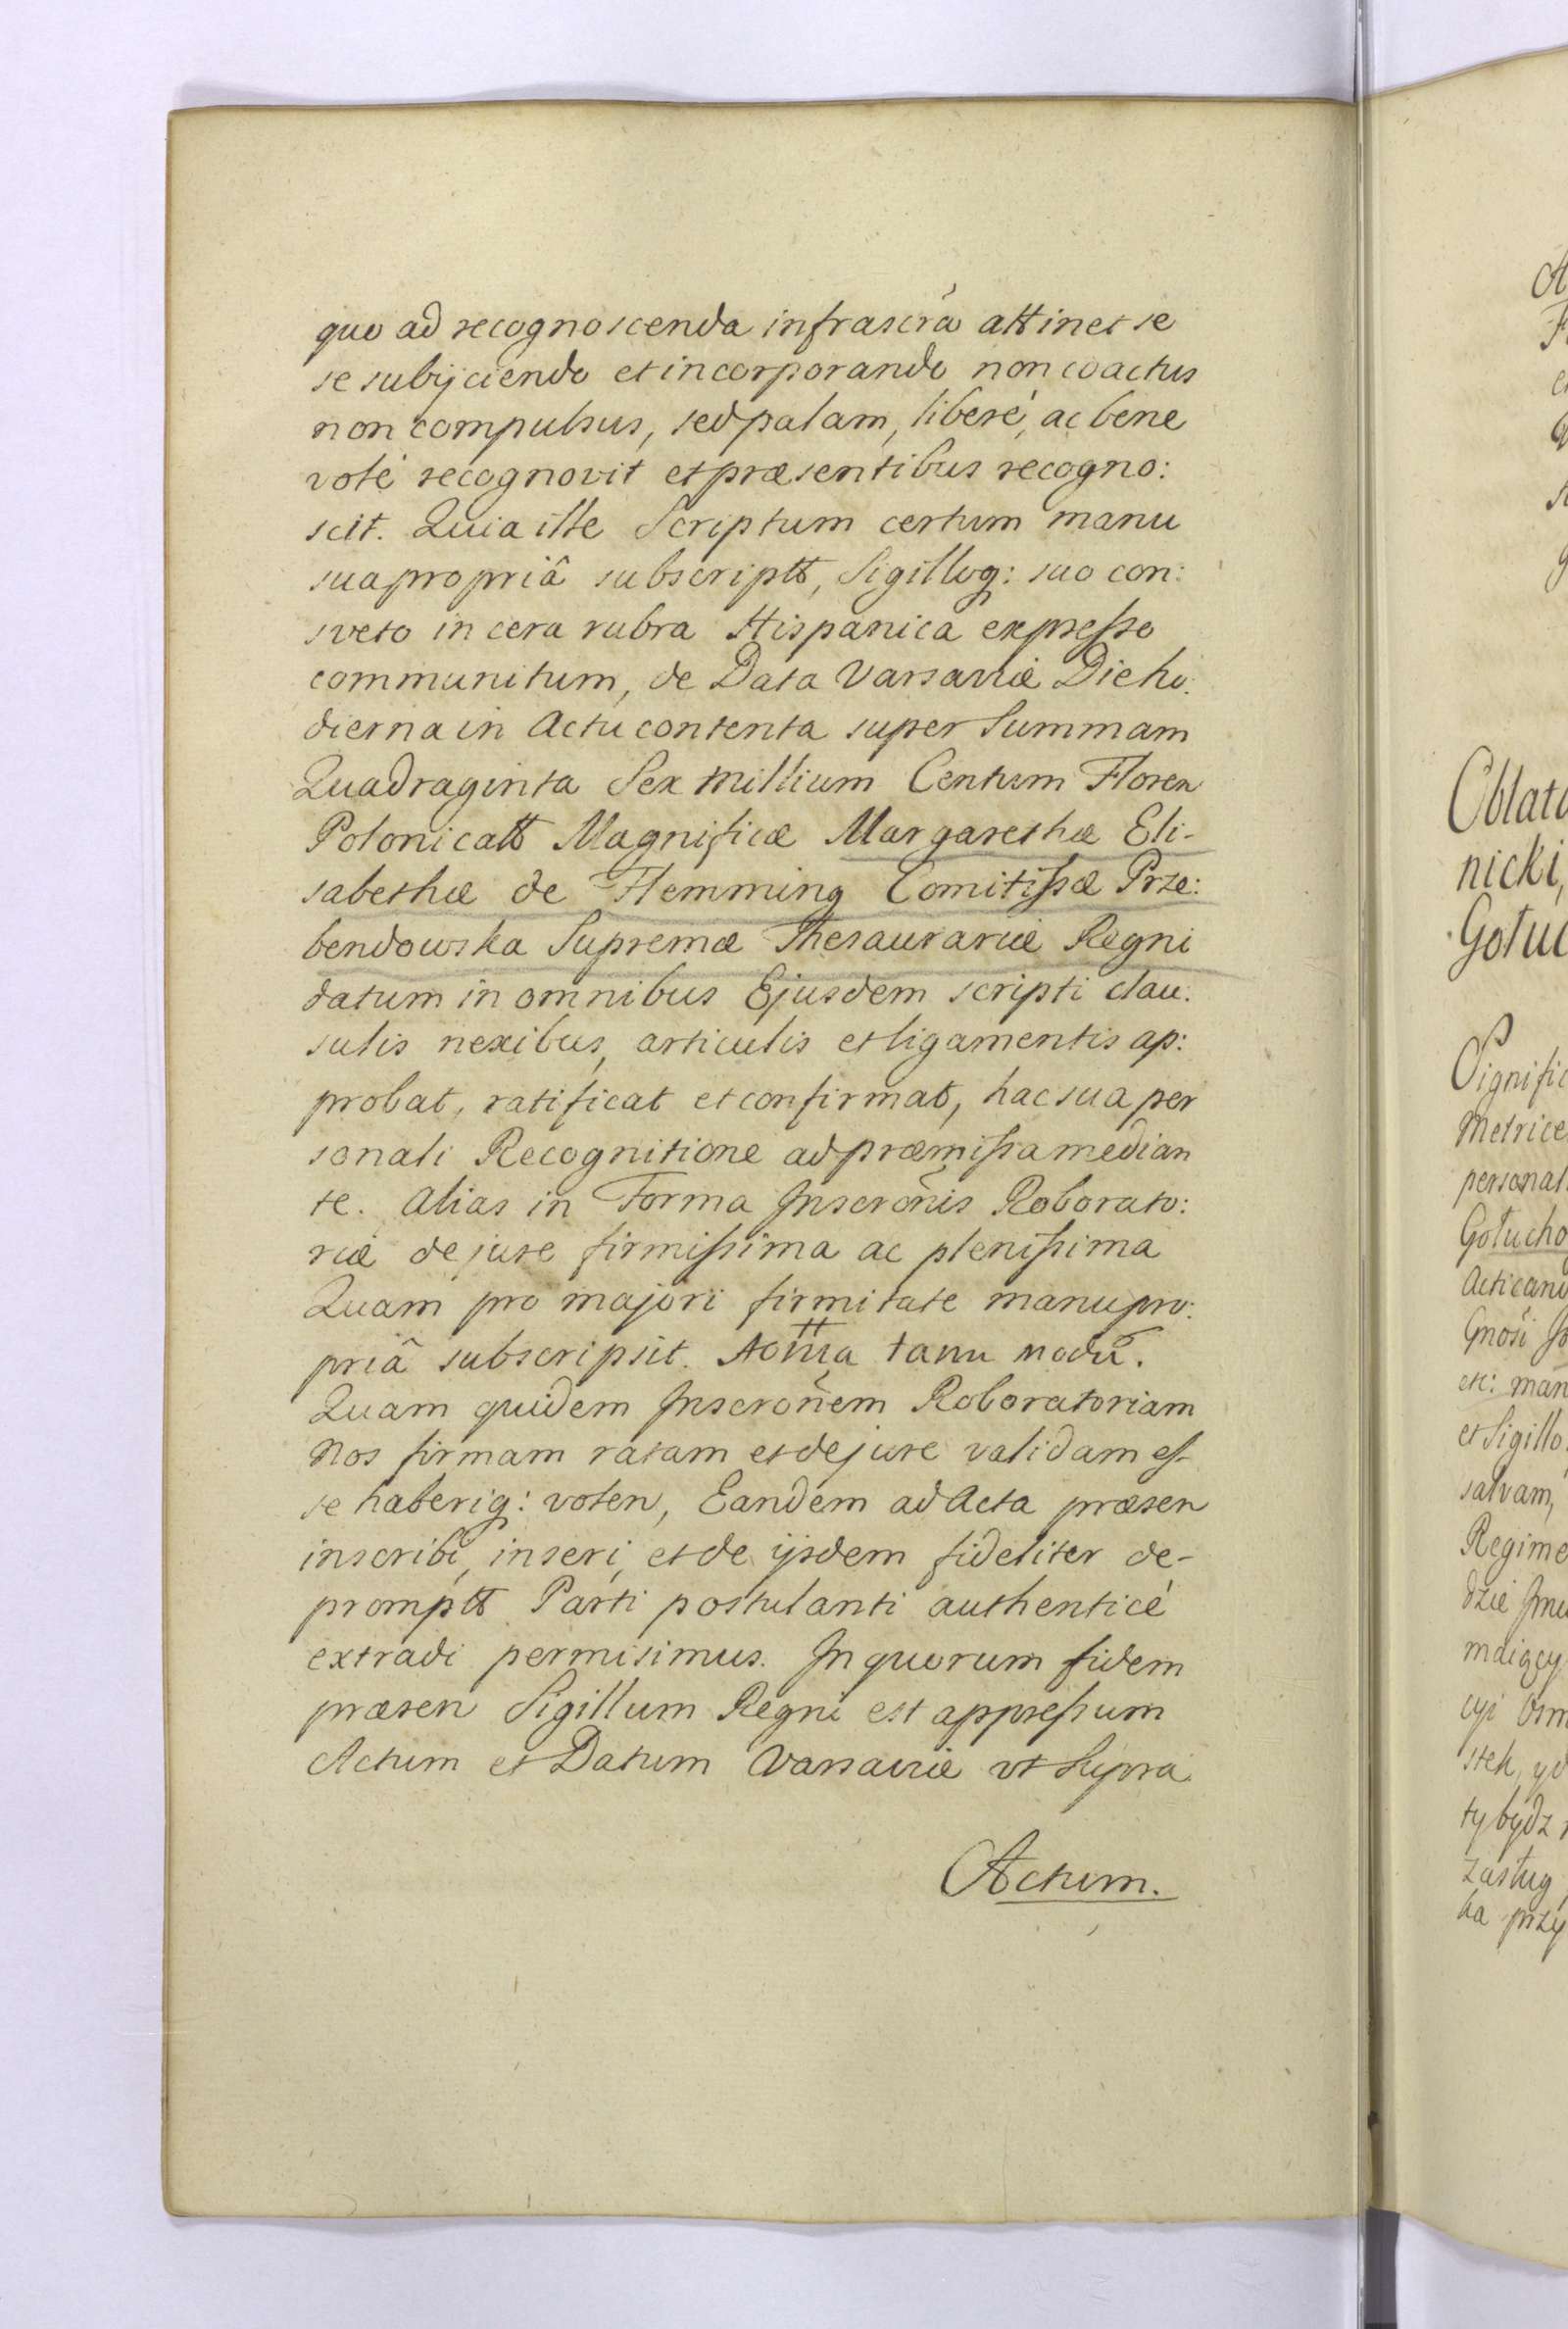 quo ad recognoscenda infrascra attinet se
se subijciendo et incorporando non coactus
non compulsus, sed palam, liberé, ac bene
volé recognovit et præsentibus recogno:
scit. Quia ille Scriptum certum manu
sua propriâ subscriptt, Sigilloq: suo con:
sveto in cera rubra Hispanica expresso
communitum, de Data Varsaviæ Die ho:
dierna in Actu contenta super Summam
Quadraginta Sex Millium Centum Floren
Polonicatt Magnificæ Margarethæ Eli-
sabethæ de Flemming Comitissæ Prze:
bendowska Supremæ Thesaurariæ Regni
datum in omnibus Ejusdem scripti clau:
sulis nexibus, articulis et ligamentis ap:
probat, ratificat et confirmat, hac sua per
sonali Recognitione ad præmissa median
te. Alias in Forma Inscrõnis Roborato:
riæ de jure firmissima ac plenissima
Quam pro majori firmitate manu pro:
priâ subscripsit. tanu modũ.
Quam quidem Inscrõnem Roboratoriam
Nos firmam ratam et de jure validam es-
se haberiq: volen, Eandem ad Acta præsen
inscribi, inseri, et de ijsdem fideliter de-
promptt Parti postulanti authenticé
extradi permisimus. In quorum fidem
præsen Sigillum Regni est appressum
Actum et Datum Varsaviæ vt Supra.
Actum.
Oblata
nicki,
Gołuc
Signific
Metrice
personal
Gołucho
Acticand
et Sigillo
salvam,
Regime
cyi
tybydz
zasług
ka przy